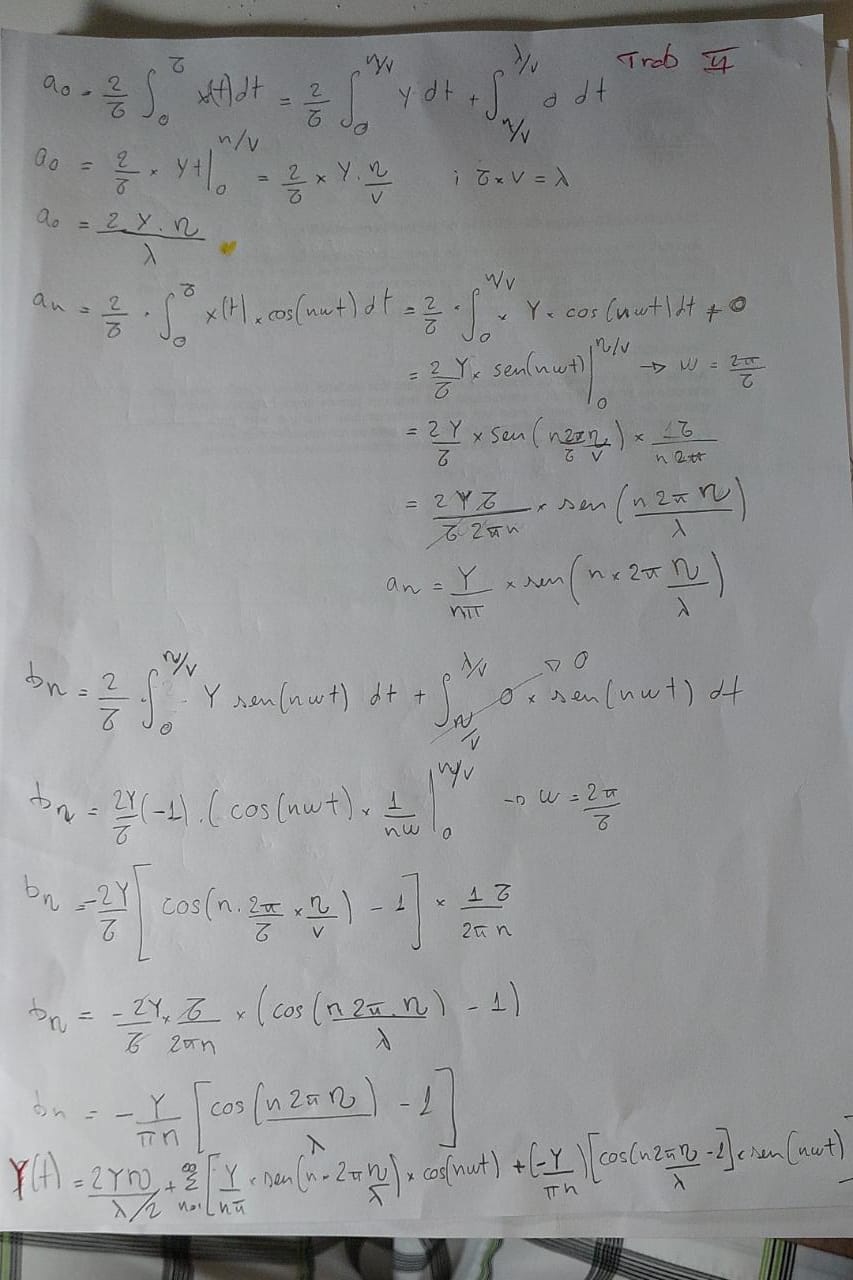 Trab VI
a₀ = 2/τ ∫₀^τ x(t)dt = 2/τ ∫₀^(η/v) Y dt + ∫_(η/v)^(λ/v) 0 dt
a₀ = 2/τ × Yt|₀^(η/v) = 2/τ × Y·η/v ; τ×v = λ
a₀ = 2·Y·η/λ
aₙ = 2/τ · ∫₀^τ x(t) × cos(nωt) dt = 2/τ · ∫₀^(η/v) × Y × cos(nωt)dt + 0
= 2/τ Y × sen(nωt)|₀^(η/v) → ω = 2π/τ
= 2Y/τ × sen(n2π/τ η/v) × 1τ/(n2π)
= 2Yτ/(τ 2πn) × sen(n2πη/λ)
aₙ = Y/(nπ) × sen(n × 2π η/λ)
bₙ = 2/τ ∫₀^(η/v) Y sen(nωt) dt + ∫_(η/v)^(λ/v) 0 × sen(nωt) dt → 0
bₙ = 2Y/τ (-1)·(cos(nωt) × 1/(nω)|₀^(η/v) → ω = 2π/τ
bₙ = -2Y/τ [cos(n·2π/τ × η/v) - 1] × 1τ/(2πn)
bₙ = -2Y/τ × τ/(2πn) × (cos(n2π·η/λ) - 1)
bₙ = -Y/(πn) [cos(n2πη/λ) - 1]
Y(t) = 2Yη/(λ/2) + Σ_(n=1)^∞ [Y/(nπ) × sen(n·2πη/λ) × cos(nωt) + (-Y/(πn)) [cos(n2πη/λ - 1] × sen(nωt)]